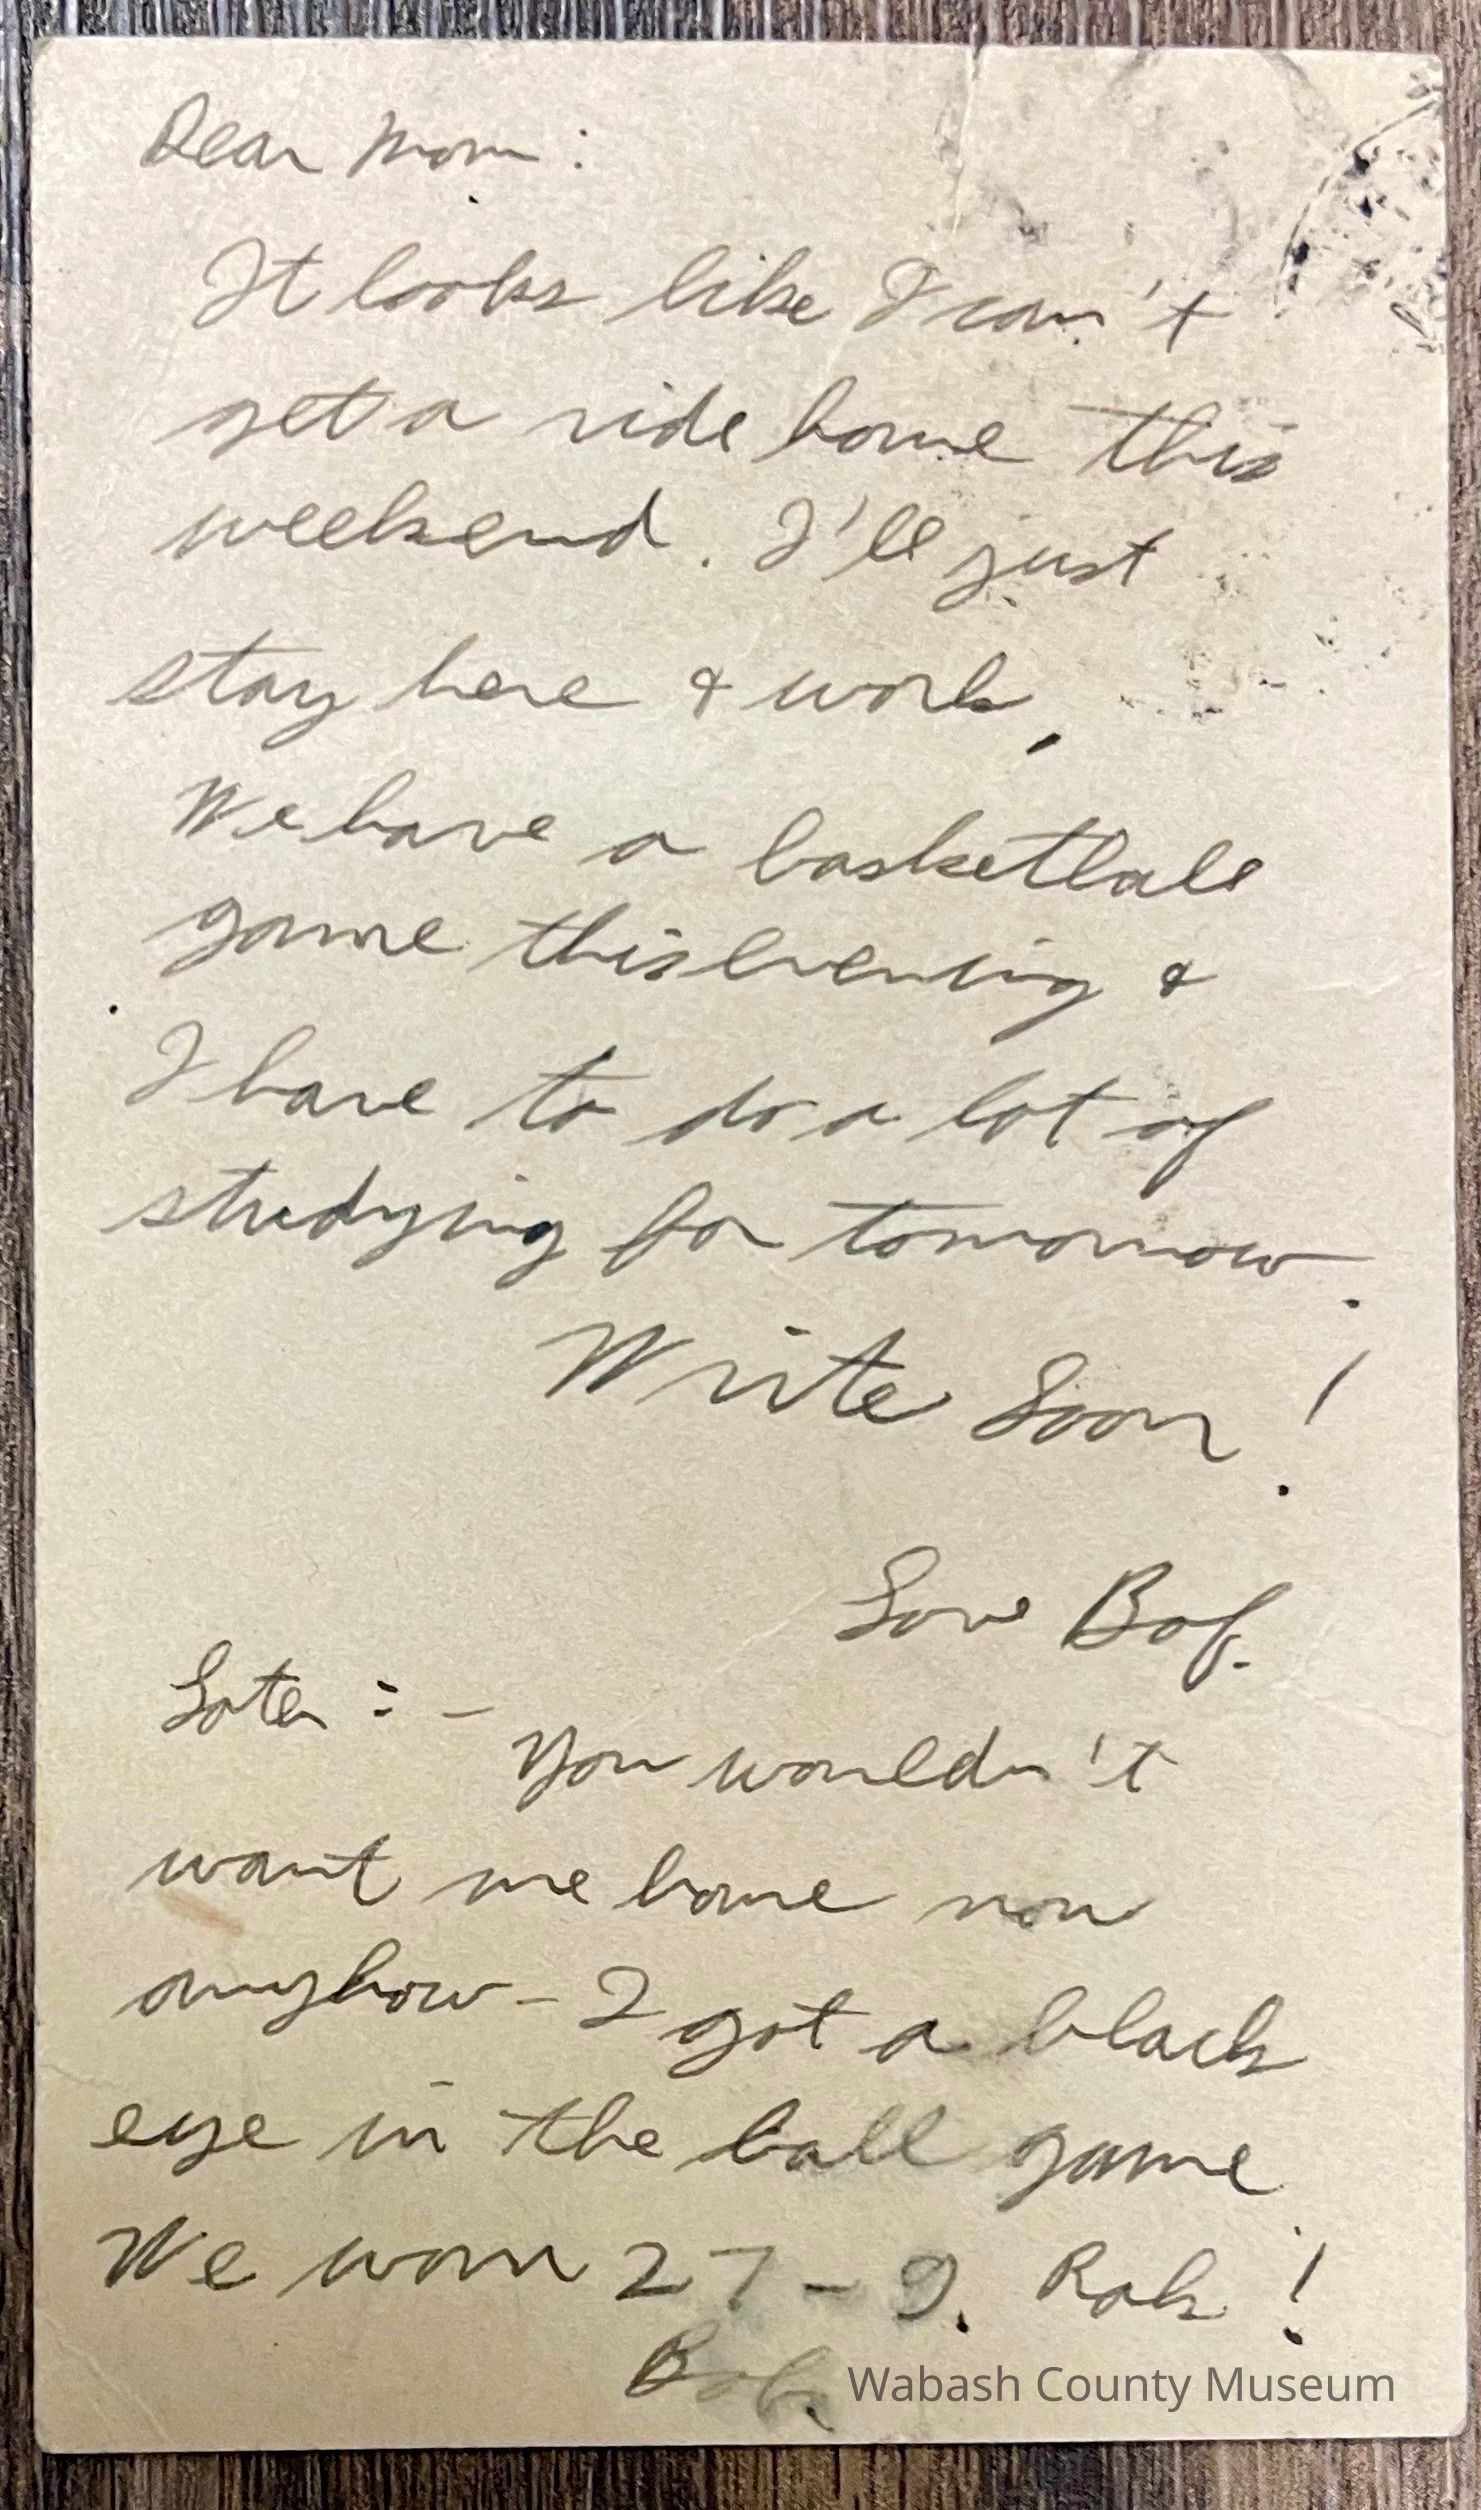 Dear Mom:
It looks like I can't
get a ride home this
weekend. I'll just
stay here & work.
We have a basketball
game this evening &
I have to do a lot of
studying for tomorrow.
Write Soon!
Love Bob.
Later:-
You wouldn't
want me home now
anyhow - I got a black
eye in the ball game
We won 27-9. Rah!
Bob.
Wabash County Museum